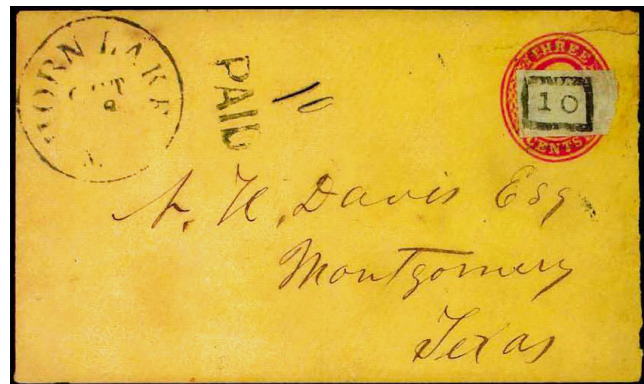 HORN LAKE
OCT
9
PAID
10
THREE
10
CENTS
N. H. Davis Esq
Montgomery
Texas